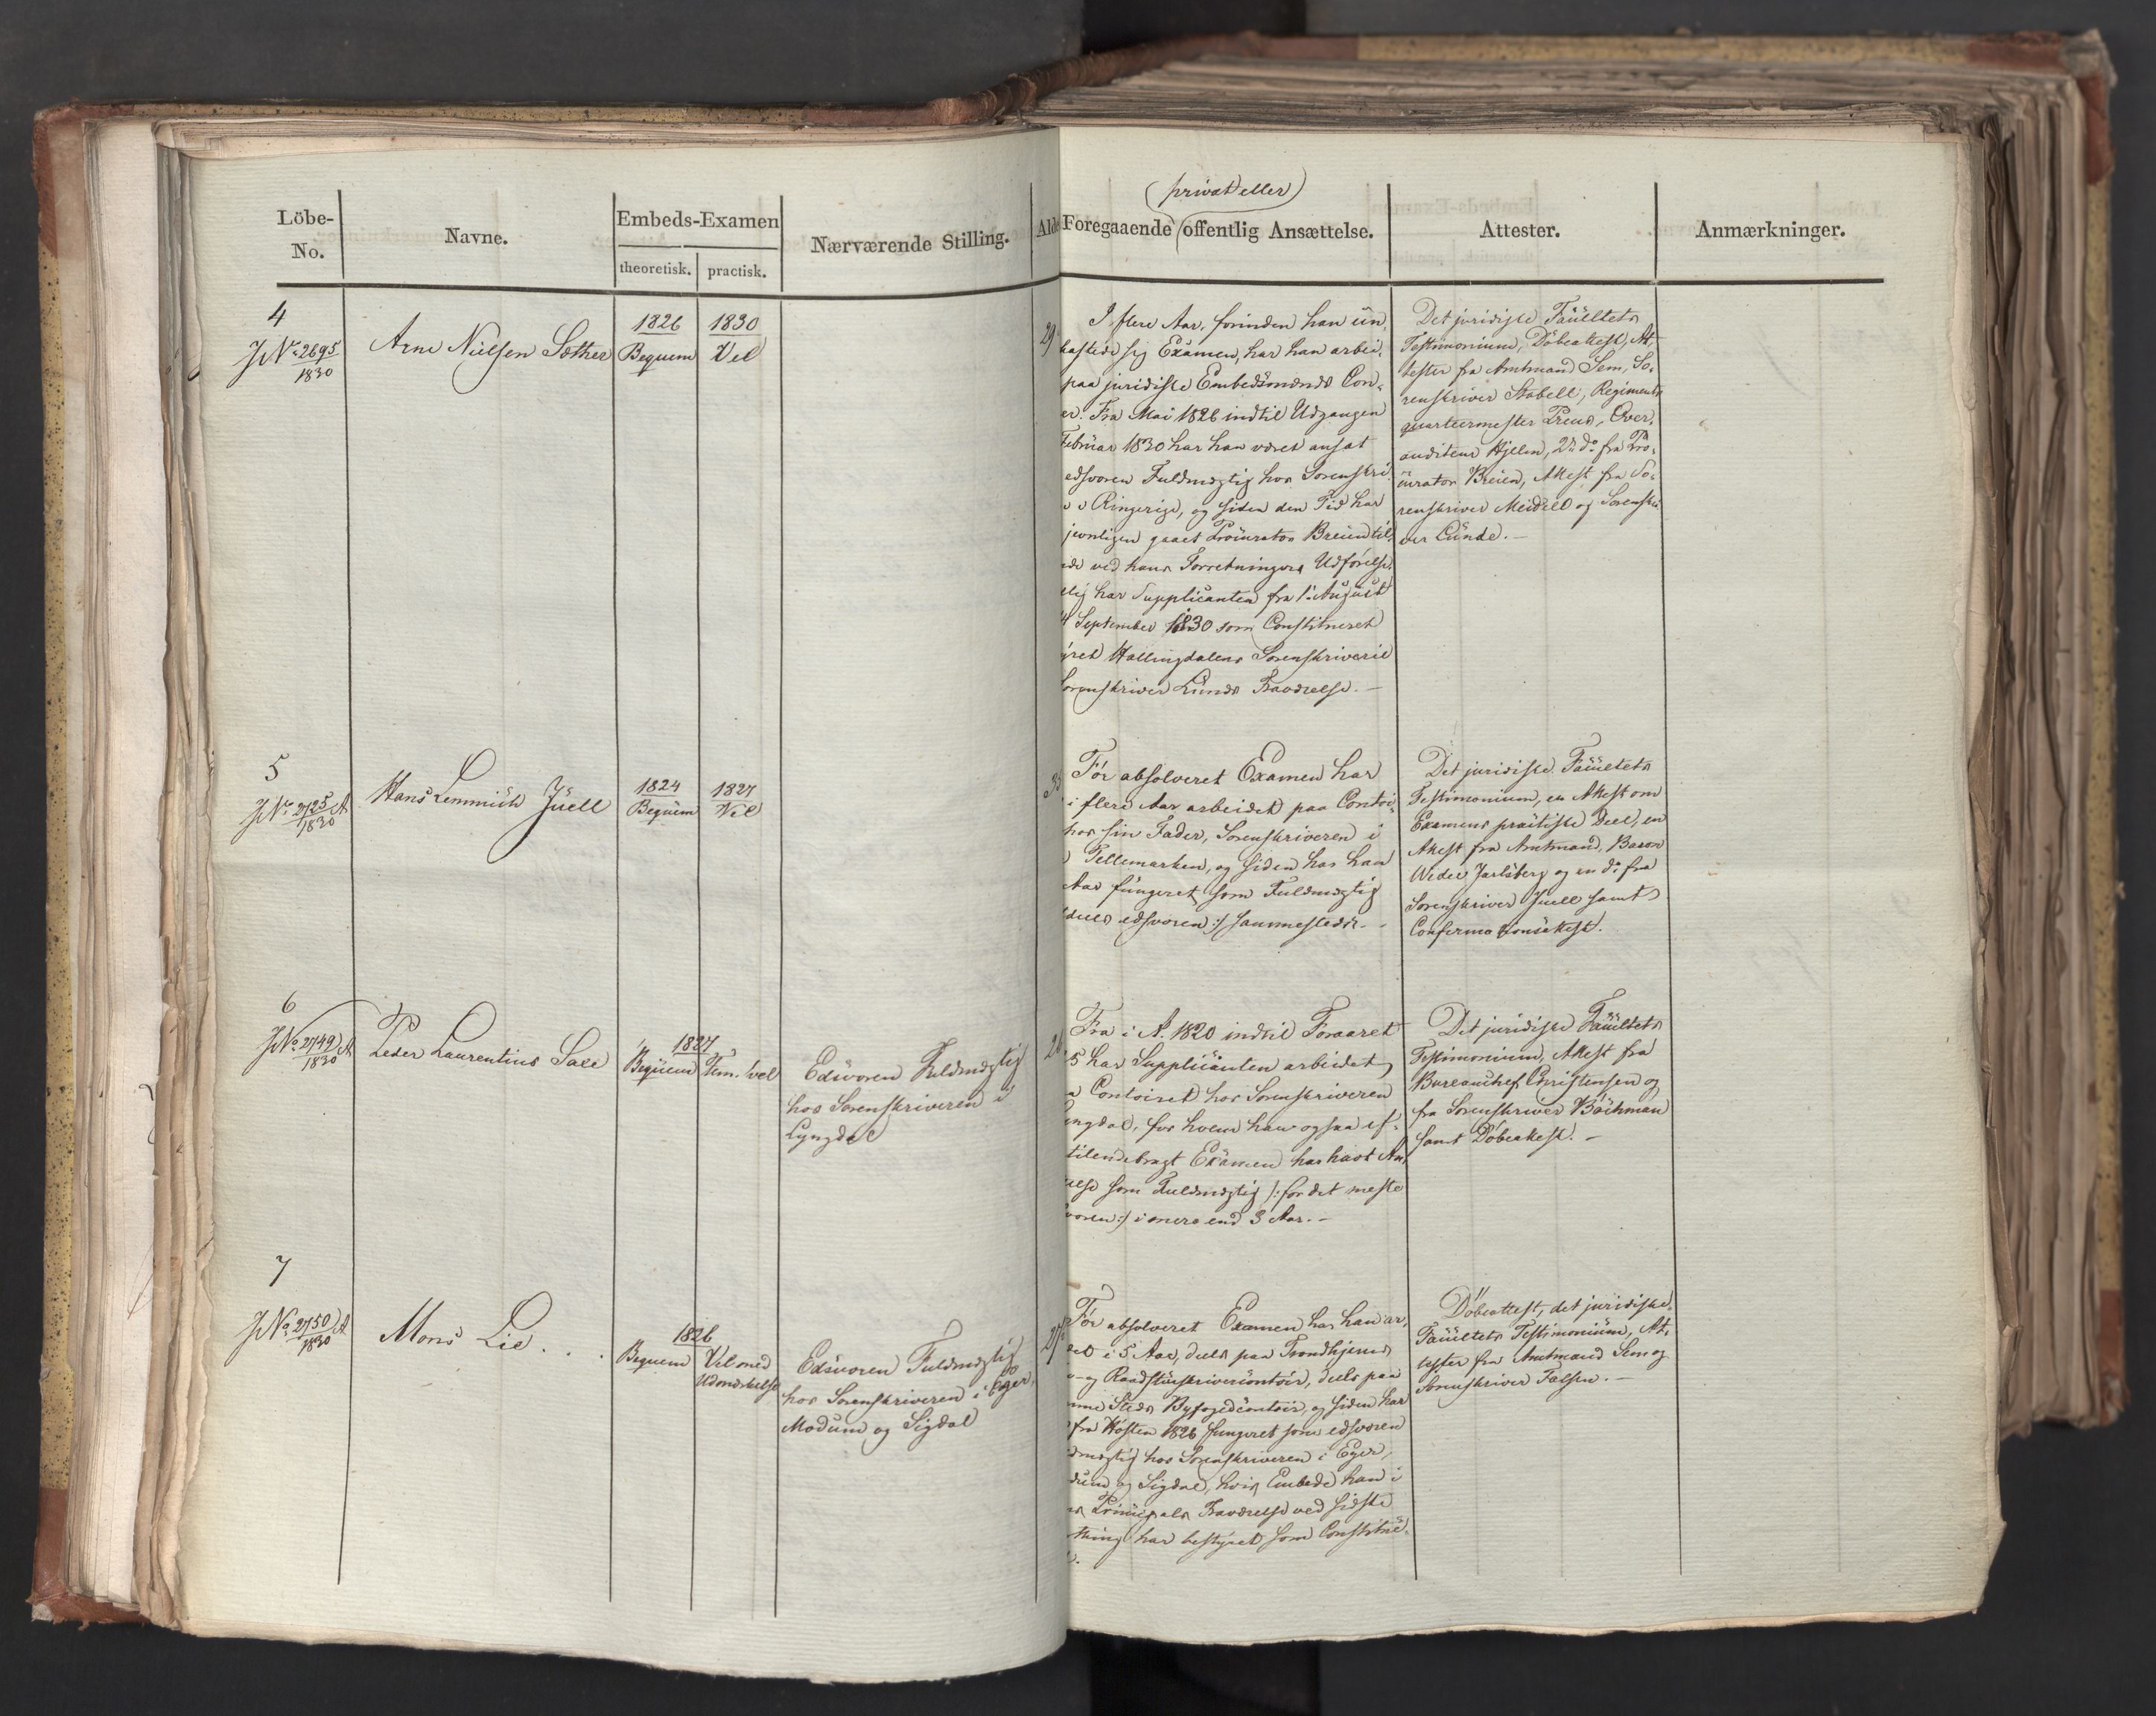 Löbe-
No.
Navne.
Embeds-Examen
theoretisk. practisk.
Nærværende Stilling.
Alde
(privat eller)
Foregaaende offentlig Ansættelse.
Attester.
Anmærkninger.
4
JNo 2695
1830
Arne Nielsen Sæther
1826
Beqvem
1830
Vel
29
I flere Aar, forinden han un,
kastede sig Examen, har han arbei,
paa juridiske Embedsmænds Con-
er. Fra Mai 1826 indtil Udgangen
Februar 1830 har han været ansat
edsvoren Fuldmægtig hos Sorenskri
Ringerige, og siden den Tid har
jevnligen gaaet Procurator Breien til
ved hans Forretningers Udførelse
lig har Supplicanten fra 1ste August
September 1830 som Constitueret
yret Hallingdalens Sorenskriverie
Sorenskriver Lunds Fraværelse. -
Det juridiske Facultets
Testimonium, Døbeattest, At-
tester fra Amtmand Sem, So-
renskriver Stabell, Regiments
quarteermester Preus, Over,
auditeur Hjelm, 2de do fra Pro-
curator Breien, Attest fra So-
renskriver Meidell og Sorenskri
ver Lunde. -
5
JNo 2725 A
1830
Hans Lemmich Juell
1824
Beqvem
1827
Vel
3
Før absolveret Examen har
i flere Aar arbeidet paa Contoi
hos sin Fader, Sorenskriveren i
Tellemarken, og siden har han
Aar fungeret som Fuldmægtig
deels edsvoren :/ sammesteds. -
Det juridiske Facultets
Testimonium, en Attest om
Examens practiske Deel, en
Attest fra Amtmand, Baron
Wedel Jarlsberg og en do fra
Sorenskriver Juell samt
Confirmationsattest.
6
JNo 2749 A
1830
Peder Laurentius Sale
1827
Beqvem Tem. vel
Edsvoren Fuldmægtig
hos Sorenskriveren i
Lyngdal
2
Fra i A. 1820 indtil Foraaret
5 har Supplicanten arbeidet
Contoiret hos Sorenskriveren
ngdal, for hvem han ogsaa ef-
tilendebragt Examen har havt An
else som Fuldmægtig /: for det meste
voren :/ i mere end 3 Aar. -
Det juridiske Facultets
Testimonium, Attest fra
Bureauchef Christensen og
fra Sorenskriver Bachman
samt Døbeattest. -
7
JNo 2750 A
1830
Mons Lie . .
1826
Beqvem Vel med
Udmærkelse
Edsvoren Fuldmægtig
hos Sorenskriveren i Eger,
Modum og Sigdal
27
Før absolveret Examen har han ar,
det i 5 Aar, deels paa Trondhjems
- og Raadstueskrivercontoir, deels paa
mme Steds Byfogedcontoir, og siden har
fra Høsten 1826 fungeret som edsvoren
dmægtig hos Sorenskriveren i Eger,
dum og Sigdal, hvis Embede han i
Principals Fraværelse ved sidste
thing har bestyret som Constitue-
Døbeattest, det juridiske
Facultets Testimonium, At,
tester fra Amtmand Sem og
Sorenskriver Falsen. -